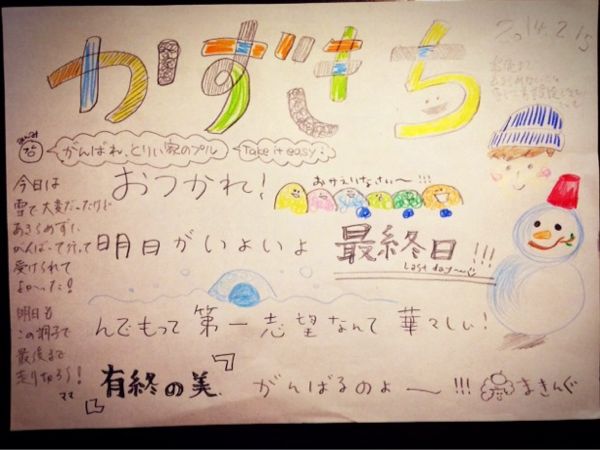 かずきち
2014.2.15
がんばれ、とりい家のプル
Take it easy!
おつかれ!
おかえりなさい〜!!!
今日は
雪で大変だったけど
あきらめずに
がんばって行って
受けられて
よかった!
明日がいよいよ 最終日!!!
Last day〜
明日も
この調子で
最後まで
走りきろう!
ママ
んでもって 第一志望なんて 華々しい!
「有終の美」 がんばるのよ〜!!! まきんぐ